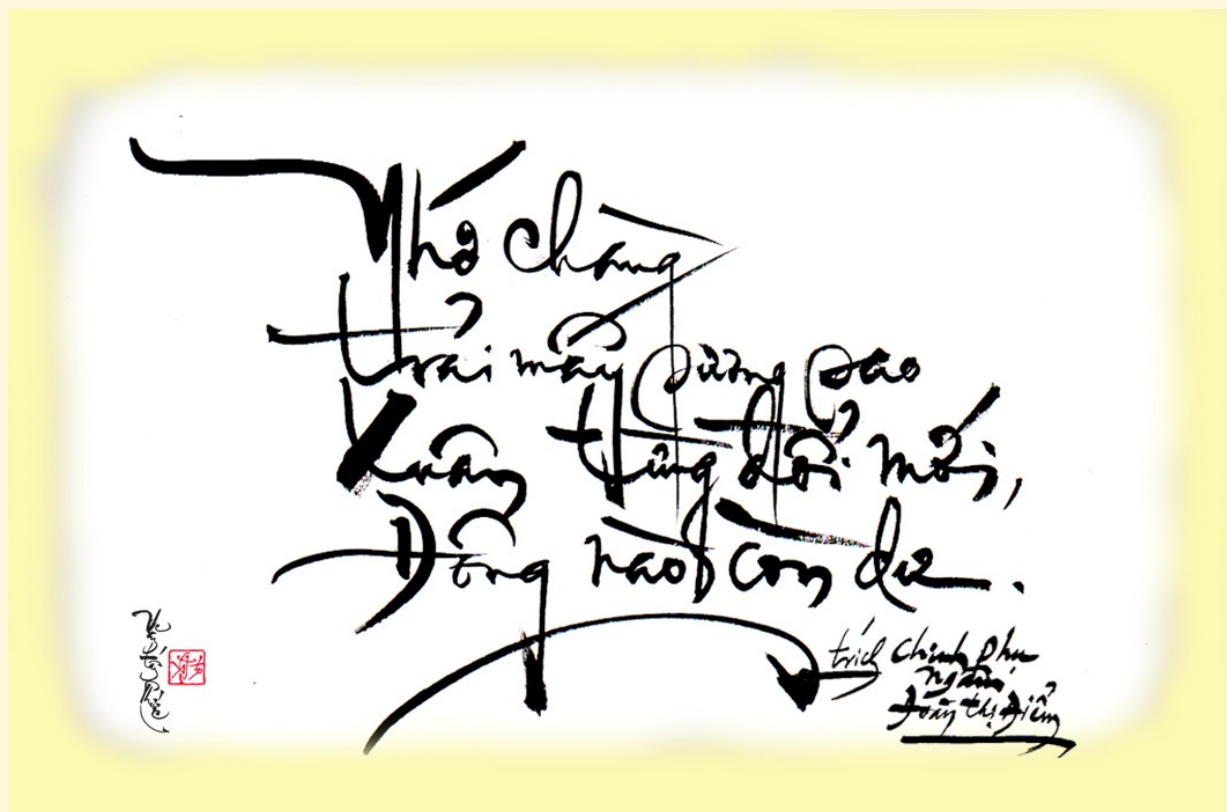 Nhớ chàng
trải mấy sương sao
Xuân từng đổi mới,
Đông nào còn dư.
trích Chinh phụ
ngâm
Đoàn thị Điểm